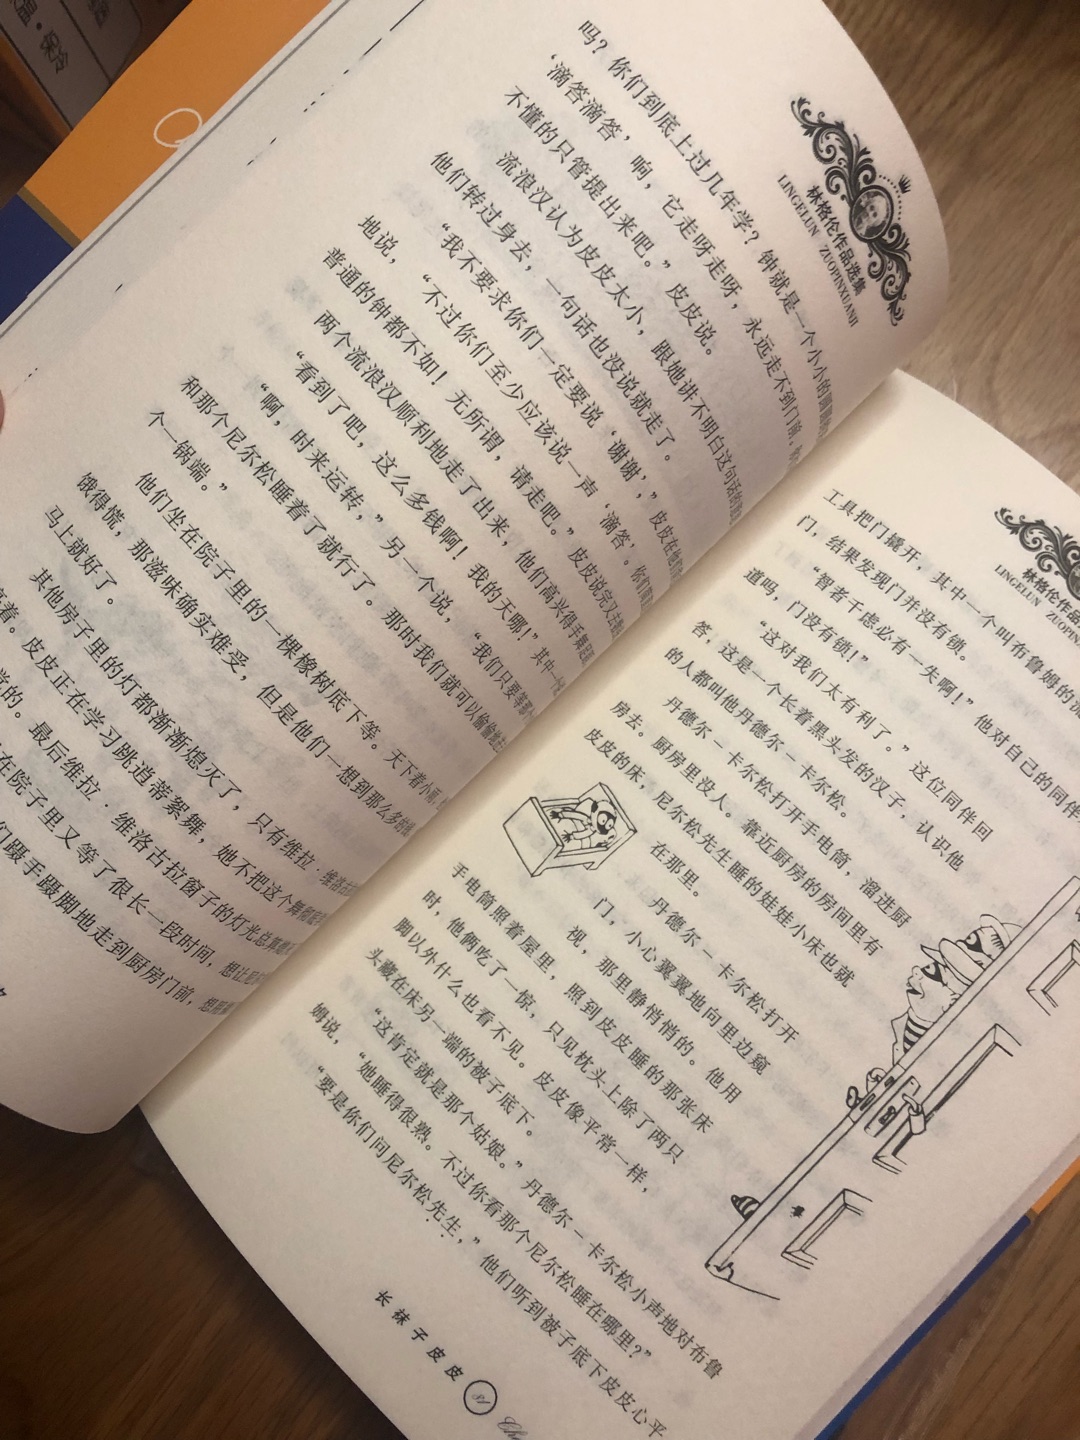 保冷
林格伦作品选集
LINGELUN ZUOPINXUANJI
吗？你们到底上过几年学？钟就是一个小小的圆圆的
‘滴答滴答’响，它走呀走呀，永远走不到门前。
不懂的只管提出来吧。”皮皮说。
流浪汉认为皮皮太小，跟她讲不明白这句话的
他们转过身去，一句话也没说就走了。
“我不要求你们一定要说‘谢谢’，”皮皮在他们
地说，“不过你们至少应该说一声‘滴答’。你们
普通的钟都不如！无所谓，请走吧。”皮皮说完又去
两个流浪汉顺利地走了出来，他们高兴得手舞足蹈
“看到了吧，这么多钱啊！我的天哪！”其中一个
“啊，时来运转，”另一个说，“我们只要等那
和那个尼尔松睡着了就行了。那时我们就可以偷偷地
个一锅端。”
他们坐在院子里的一棵橡树底下等。天下着小雨，
饿得慌，那滋味确实难受，但是他们一想到那么多的钱，
马上就好了。
其他房子里的灯都渐渐熄灭了，只有维拉·维洛古拉
亮着。皮皮正在学习跳逍蒂絮舞，她不把这个舞
觉的。最后维拉·维洛古拉窗子的灯光总算
在院子里又等了很长一段时间，想让尼尔
们蹑手蹑脚地走到厨房门前，想用
林格伦作品
LINGELUN ZUOPIN
工具把门撬开，其中一个叫布鲁姆的流
门，结果发现门并没有锁。
“智者千虑必有一失啊！”他对自己的同伴
道吗，门没有锁！”
“这对我们太有利了。”这位同伴回
答，这是一个长着黑头发的汉子，认识他
的人都叫他丹德尔－卡尔松。
丹德尔－卡尔松打开手电筒，溜进厨
房去。厨房里没人。靠近厨房的房间里有
皮皮的床，尼尔松先生睡的娃娃小床也就
在那里。
丹德尔－卡尔松打开
门，小心翼翼地向里边窥
视，那里静悄悄的。他用
手电筒照着屋里，照到皮皮睡的那张床
时，他俩吃了一惊，只见枕头上除了两只
脚以外什么也看不见。皮皮像平常一样，
头藏在床另一端的被子底下。
“这肯定就是那个姑娘。”丹德尔－卡尔松小声地对布鲁
姆说，“她睡得很熟。不过你看那个尼尔松睡在哪里？”
“要是你们问尼尔松先生，”他们听到被子底下皮皮心平
长袜子皮皮